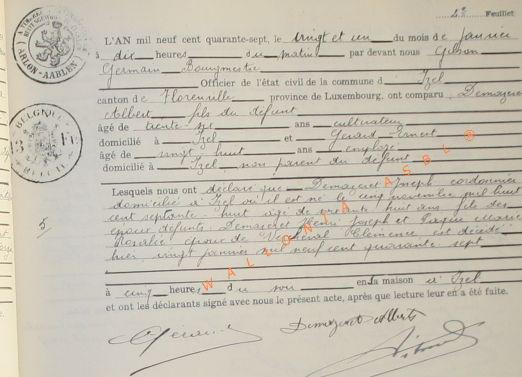 23 Feuillet
L'AN mil neuf cent quarante-sept, le vingt et un du mois de janvier
à dix heures du matin par devant nous Gibon
Germain Bourgmestre
Officier de l'état civil de la commune d' Izel
canton de Florenville province de Luxembourg, ont comparu Demazeret
Albert fils du défunt
âgé de trente six ans cultivateur
domicilié à Izel et Gérard Ernest
âgé de vingt huit ans employé
domicilié à Izel non parent du défunt
Lesquels nous ont déclaré que Demazeret Joseph cordonnier
domicilié à Izel où il est né le cinq novembre mil huit
cent septante huit âgé de soixante huit ans fils des
époux défunts Demazeret Henri Joseph et Marie
Rosalie époux de Clémence est décédé
hier vingt janvier mil neuf cent quarante sept
à cinq heures du soir en la maison à Izel
et ont les déclarants signé avec nous le présent acte, après que lecture leur en a été faite.
Gérard
Demazeret Albert
5
ARLON-AARLEN
BELGIQUE
BELGIE
WALLONIA ASBL ®